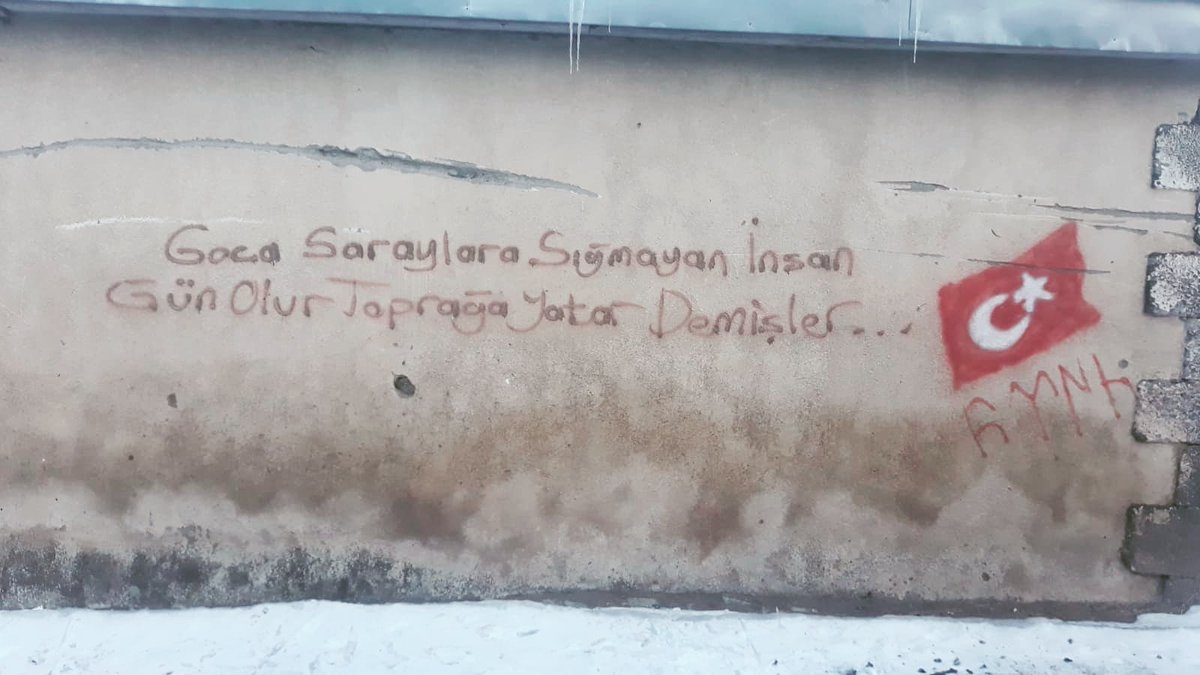 Goca Saraylara Sığmayan İnsan
Gün Olur Toprağa Yatar Demişler...
𐱅𐰇𐰼𐰜